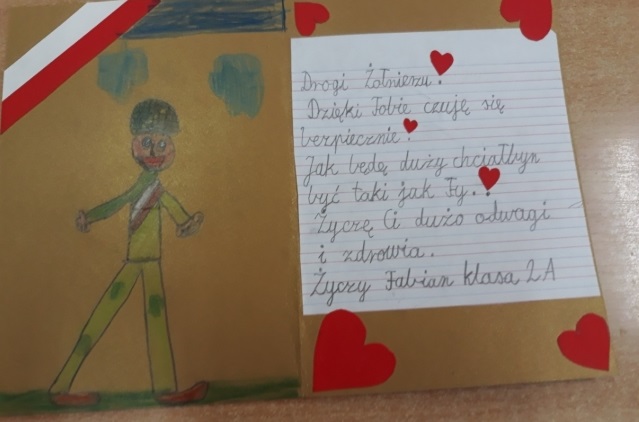 Drogi Żołnierzu.
Dzięki Tobie czuję się
bezpiecznie.
Jak będę duży chciałbym
być taki jak Ty..
Życzę Ci dużo odwagi
i zdrowia.
Życzy Fabian klasa 2A